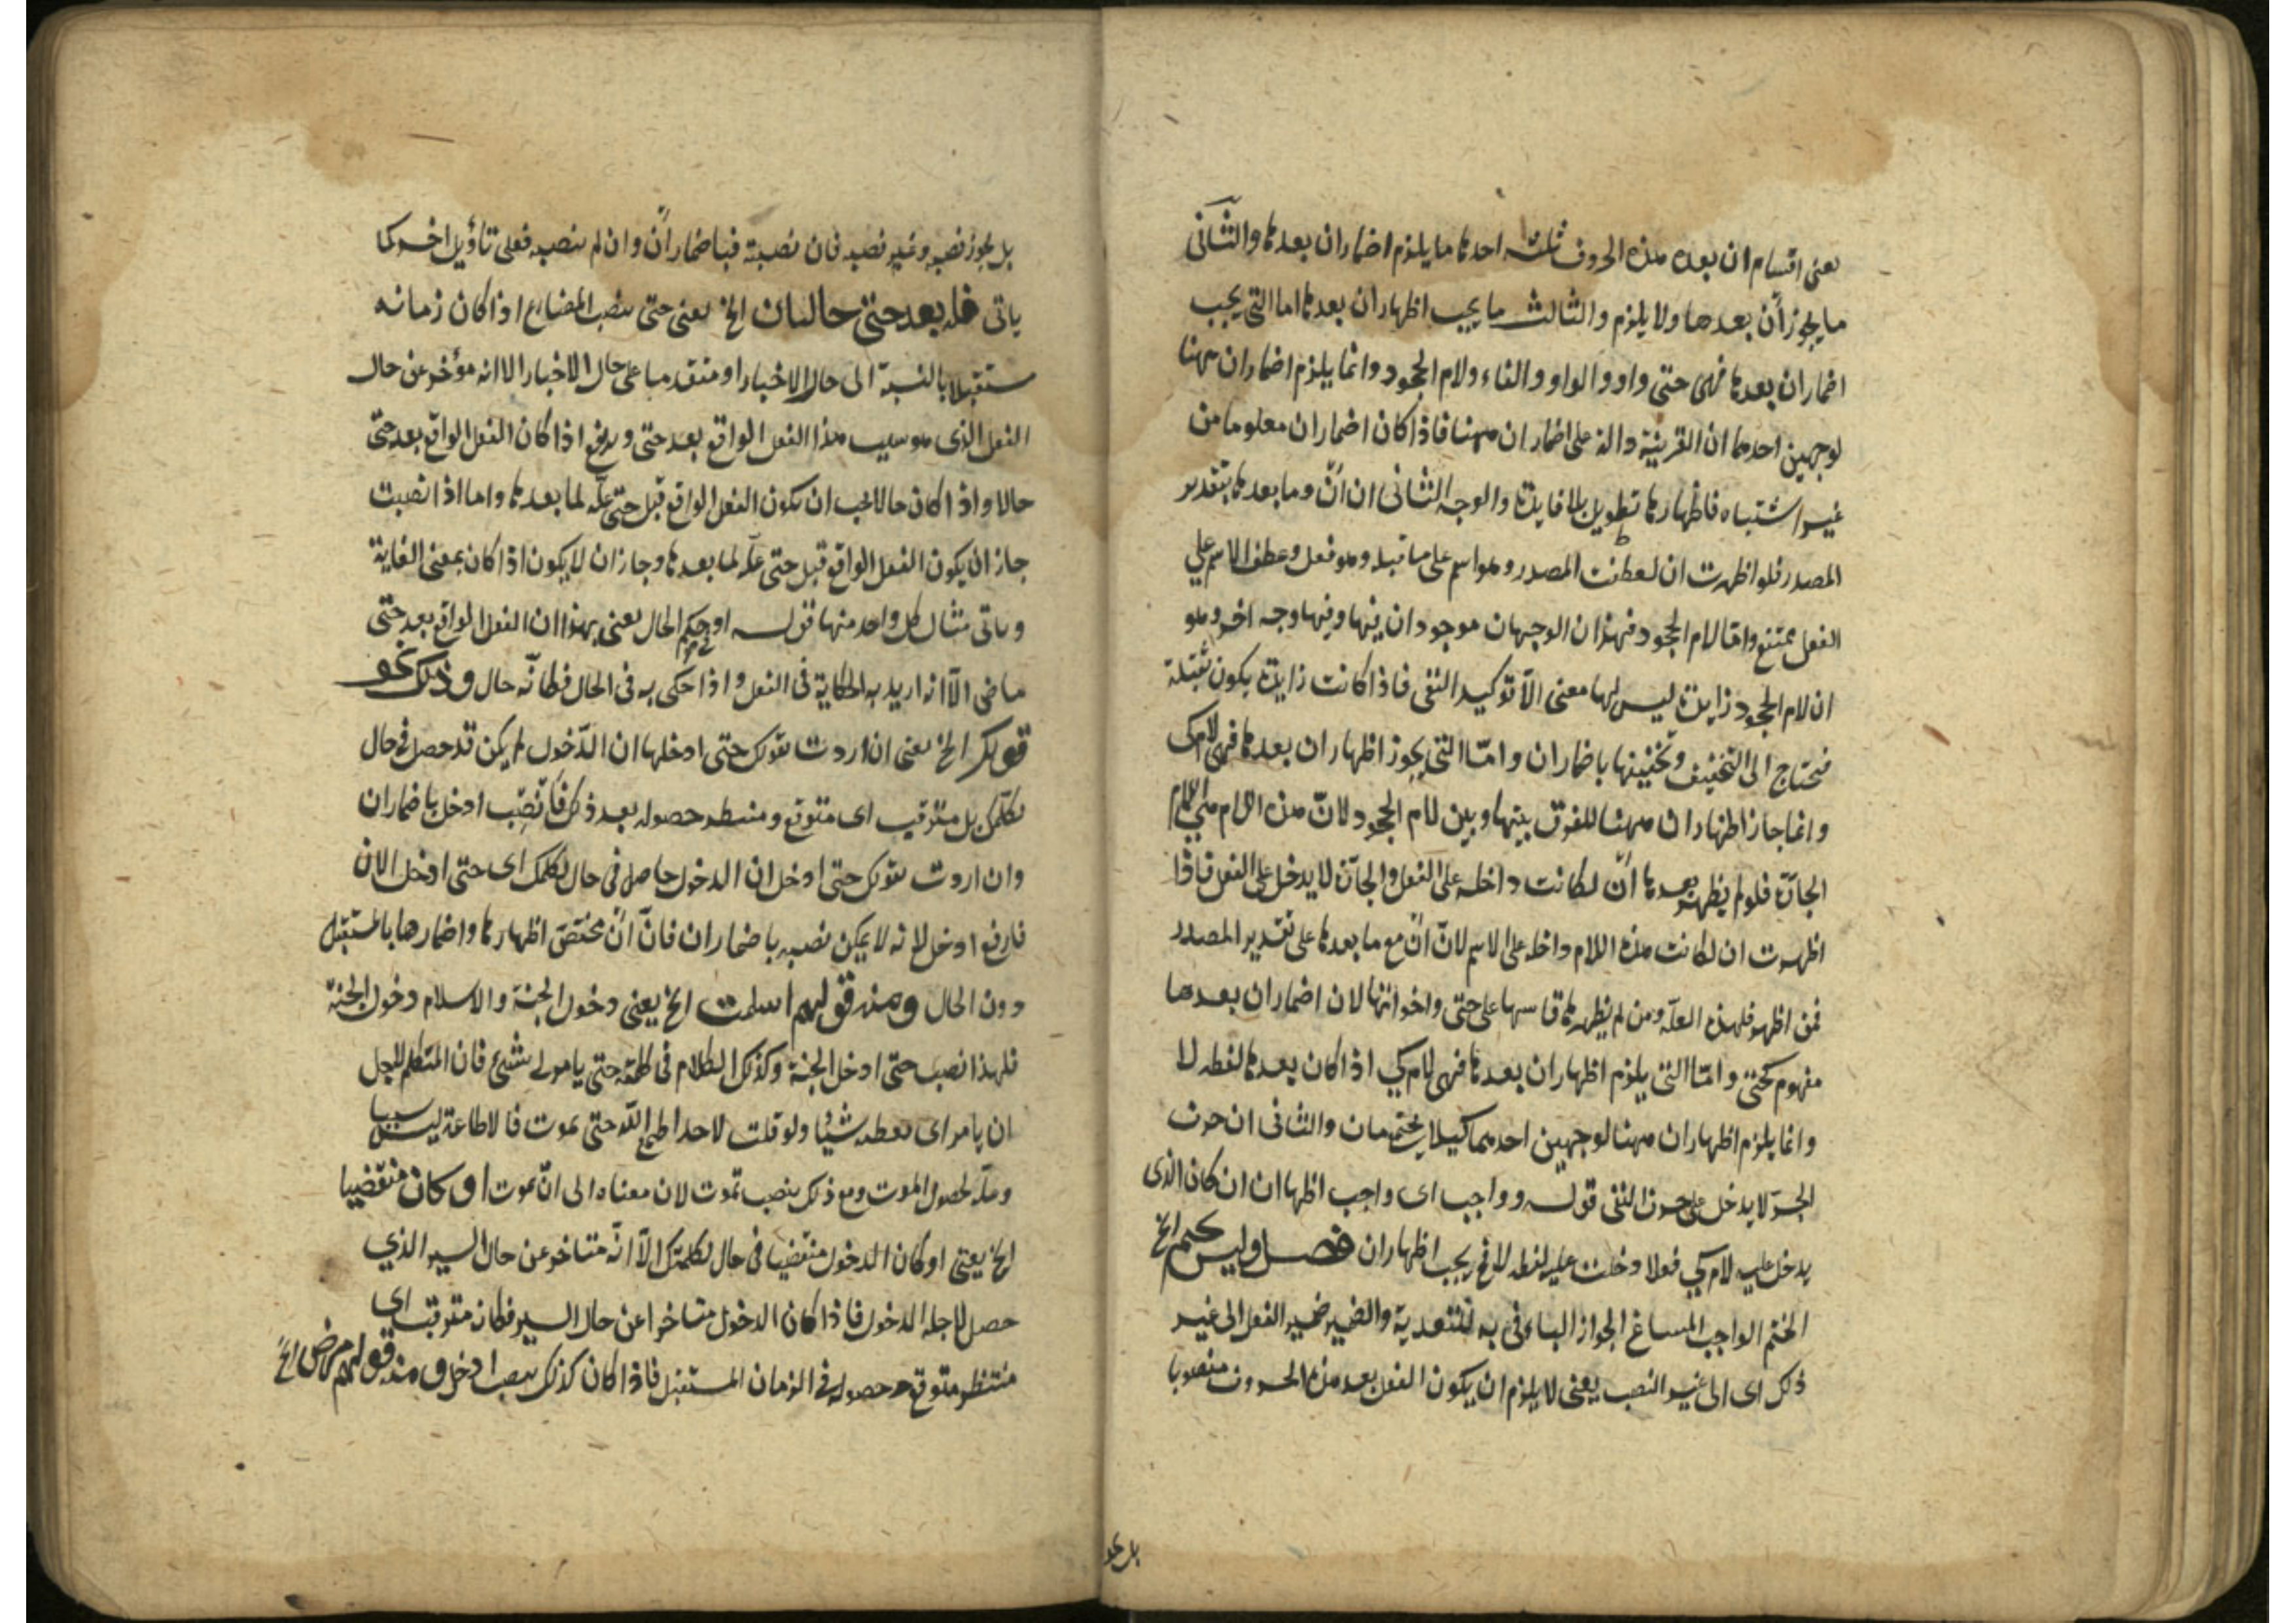 يعنى اقسام ان بعده هذه الحروف ثلثه احدها ما يلزم اضمار ان بعدها والثانى
ما يجوز أن بعدها ولا يلزم والثالث ما يجب اظهار ان بعدها اما التى يجب
اضمار ان بعدها فهى حتى واو والواو والفاء ولام الجحود وانما يلزم اضمار ان ههنا
لوجهين احدهما ان القرينة دالة على اضمار ان ههنا فاذا كان اضمار ان معلوما من
غير اشتباه فاظهارها تطويل بلا فايدة والوجه الثانى ان أن وما بعدها بتقدير
المصدر فلو اظهرت ان لعطفت المصدر وهو اسم على ما قبله وهو فعل وعطف الاسم على
الفعل ممتنع وامّا لام الجحود فهذان الوجهان موجودان فيها وفيها وجه اخر وهو
ان لام الجحود زايدة ليس لها معنى الّا توكيد النفى فاذا كانت زايدة يكون ثقيلة
فتحتاج الى التخفيف وتخفيفها باضمار ان وامّا التى يجوز اظهار ان بعدها فهى لام كى
وانما جاز اظهار ان ههنا للفرق بينها وبين لام الجحود لانّ هذه اللام هى اللام
الجارّة فلو لم يظهر بعدها أن لكانت داخلة على الفعل والجارّة لا يدخل على الفعل فاذا
اظهرت ان لكانت هذه اللام داخلة على الاسم لانّ أن مع ما بعدها على تقدير المصدر
فمن اظهر فلهذه العلّة ومن لم يظهرها قاسها على حتى واخواتها لان اضمار ان بعدها
مفهوم كحتى وامّا التى يلزم اظهار ان بعدها فهى لام كي اذا كان بعدها لفظه لا
وانما يلزم اظهار ان ههنا لوجهين احدهما كيلا يجتمع لامان والثانى ان حرف
الجرّ لا يدخل على حرف النفى قوله وواجب اى واجب اظهار ان ان كان الذى
يدخل عليه لام كي فعلا دخلت عليه لفظه لا فح يجب اظهار ان فصل وليس بحتم الخ
الحتم الواجب المساغ الجواز الباء فى به للتعدية والضمير ضمير الفعل الى غير
ذلك اى الى غير النصب يعنى لا يلزم ان يكون الفعل بعد هذه الحروف منصوبا
بل يجو
بل يجوز نصبه وغير نصبه فان نصبته فباضمار أن وان لم ينصبه فعلى تاؤيل اخر كما
ياتى فله بعد حتى حالتان الخ يعنى حتى ينصب المضارع اذا كان زمانه
مستقبلا بالنسبة الى حال الاخبار او متقدما على حال الاخبار الا انه مؤخر عن حال
الفعل الذى هو سبب هذا الفعل الواقع بعد حتى ويرفع اذا كان الفعل الواقع بعد حتى
حالا واذا كان حالا يجب ان يكون الفعل الواقع قبل حتى علّة لما بعدها واما اذا نصبت
جاز ان يكون الفعل الواقع قبل حتى علّة لما بعدها وجاز ان لا يكون اذا كان بمعنى الغاية
وياتى مثال كل واحد منها قوله او فى حكم الحال يعنى بهذا ان الفعل الواقع بعد حتى
ماضى الّا انه اريد به الحكاية فى الفعل واذا حكى به فى الحال فكانّه حال وذلك نحو
قولك الخ يعنى ان اردت بقولك حتى ادخلها ان الدّخول لم يكن قد حصل فى حال
تكلمك بل مترقب اى متوقع ومنتظر حصوله بعد ذلك فانصب ادخل باضمار ان
وان اردت بقولك حتى ادخل ان الدخول حاصل فى حال تكلمك اى حتى ادخل الان
فارفع ادخل لانه لا يمكن نصبه باضمار ان فانّ أن مختص اظهارها واضمارها بالمستقبل
دون الحال ومنه قولهم اسلمت الخ يعنى دخول الجنة والاسلام دخول الجنة
فلهذا نصب حتى ادخل الجنة وكذلك الكلام فى كلمته حتى يامر لى بشئ فان المتكلم لاجل
ان يامر اى يعطيه شيئا ولو قلت لاحد اطع اللّه حتى يموت فالاطاعة ليس سببا
وعلّة لحصول الموت ومع ذلك ينصب تموت لان معناه الى انّ يموت او كان منقضيا
الخ يعنى او كان الدخول منقضيا فى حال تكلمك الّا انّه متاخر عن حال السير الذي
حصل لاجله الدخول فاذا كان الدخول متاخرا عن حال السير فكانه مترقب اي
منتظر متوقع حصوله فى الزمان المستقبل فاذا كان كذلك ينصب ادخل ومنه قولهم مرض الخ